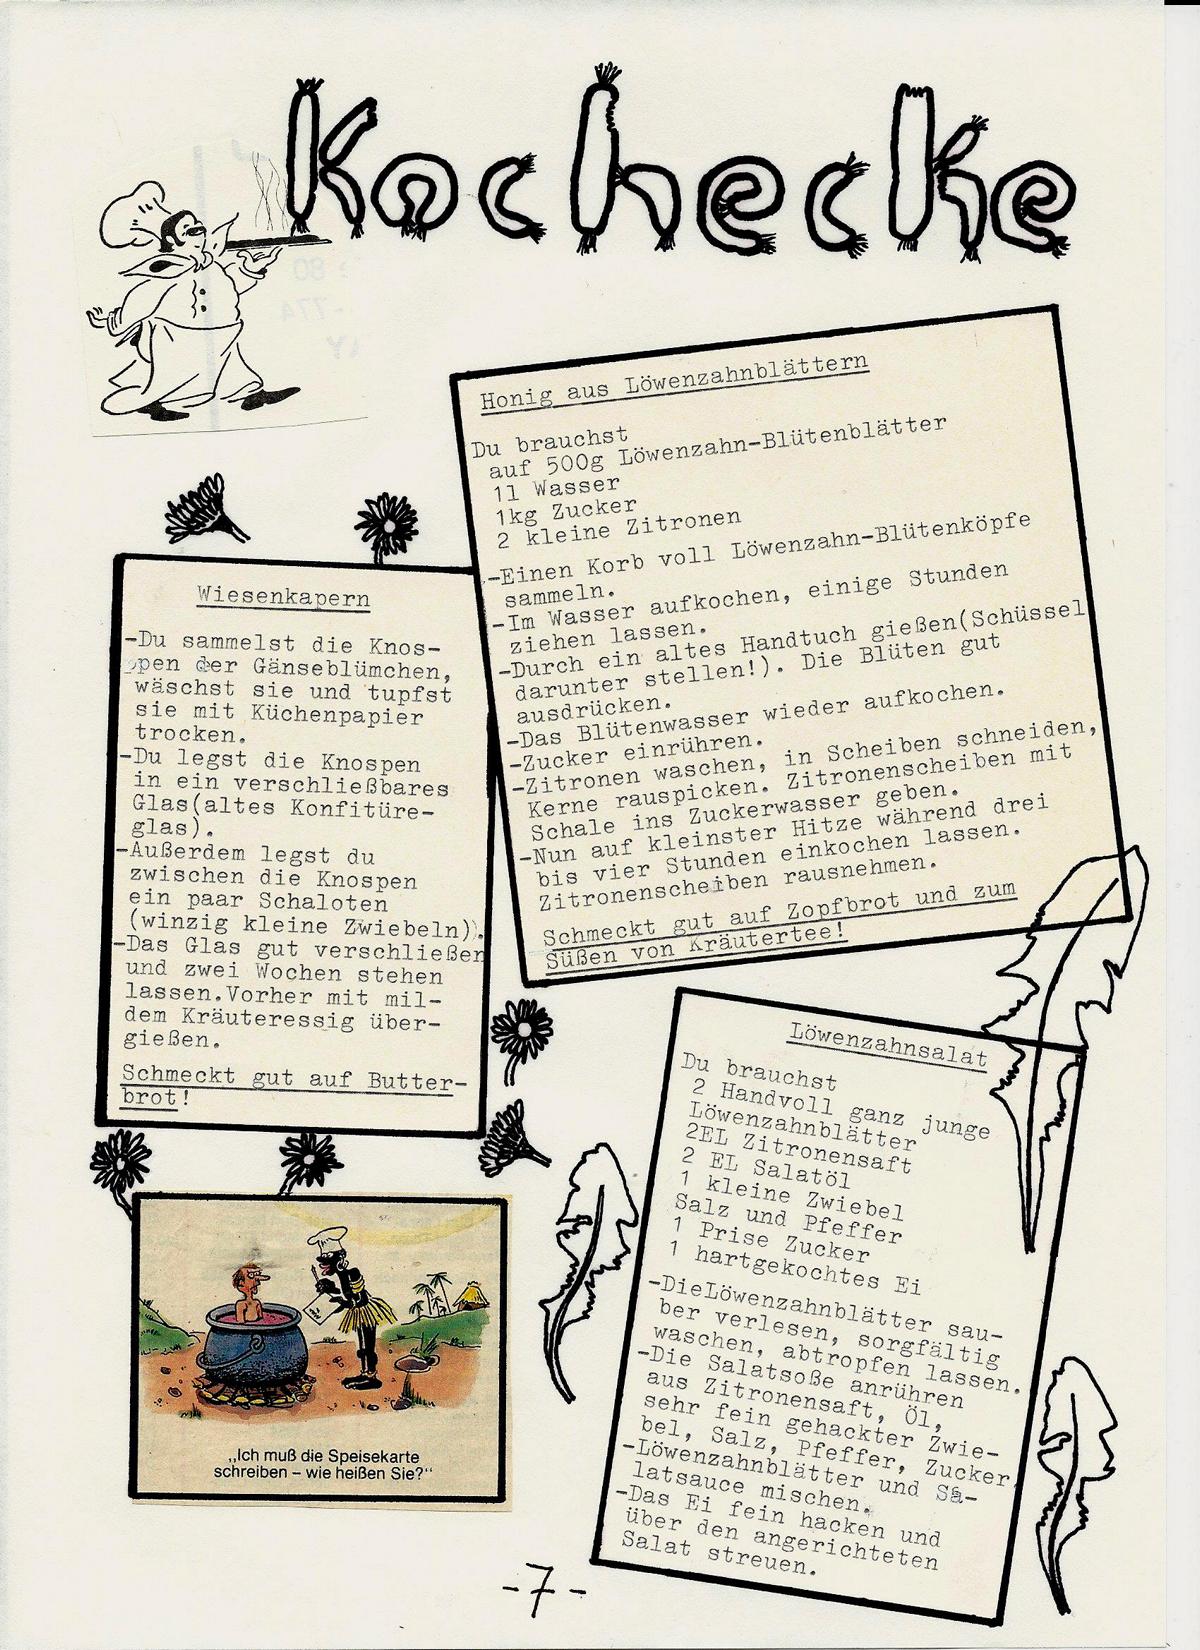 Kochecke
Honig aus Löwenzahnblättern
Du brauchst
auf 500g Löwenzahn-Blütenblätter
1l Wasser
1kg Zucker
2 kleine Zitronen
-Einen Korb voll Löwenzahn-Blütenköpfe
sammeln.
-Im Wasser aufkochen, einige Stunden
ziehen lassen.
-Durch ein altes Handtuch gießen(Schüssel
darunter stellen!). Die Blüten gut
ausdrücken.
-Das Blütenwasser wieder aufkochen.
-Zucker einrühren.
-Zitronen waschen, in Scheiben schneiden,
Kerne rauspicken. Zitronenscheiben mit
Schale ins Zuckerwasser geben.
-Nun auf kleinster Hitze während drei
bis vier Stunden einkochen lassen.
Zitronenscheiben rausnehmen.
Schmeckt gut auf Zopfbrot und zum
Süßen von Kräutertee!
Wiesenkapern
-Du sammelst die Knos-
pen der Gänseblümchen,
wäschst sie und tupfst
sie mit Küchenpapier
trocken.
-Du legst die Knospen
in ein verschließbares
Glas(altes Konfitüre-
glas).
-Außerdem legst du
zwischen die Knospen
ein paar Schaloten
(winzig kleine Zwiebeln).
-Das Glas gut verschließen
und zwei Wochen stehen
lassen.Vorher mit mil-
dem Kräuteressig über-
gießen.
Schmeckt gut auf Butter-
brot!
Löwenzahnsalat
Du brauchst
2 Handvoll ganz junge
Löwenzahnblätter
2EL Zitronensaft
2 EL Salatöl
1 kleine Zwiebel
Salz und Pfeffer
1 Prise Zucker
1 hartgekochtes Ei
-DieLöwenzahnblätter sau-
ber verlesen, sorgfältig
waschen, abtropfen lassen.
-Die Salatsoße anrühren
aus Zitronensaft, Öl,
sehr fein gehackter Zwie-
bel, Salz, Pfeffer, Zucker
-Löwenzahnblätter und Sa-
latsauce mischen.
-Das Ei fein hacken und
über den angerichteten
Salat streuen.
„Ich muß die Speisekarte
schreiben – wie heißen Sie?“
-7-